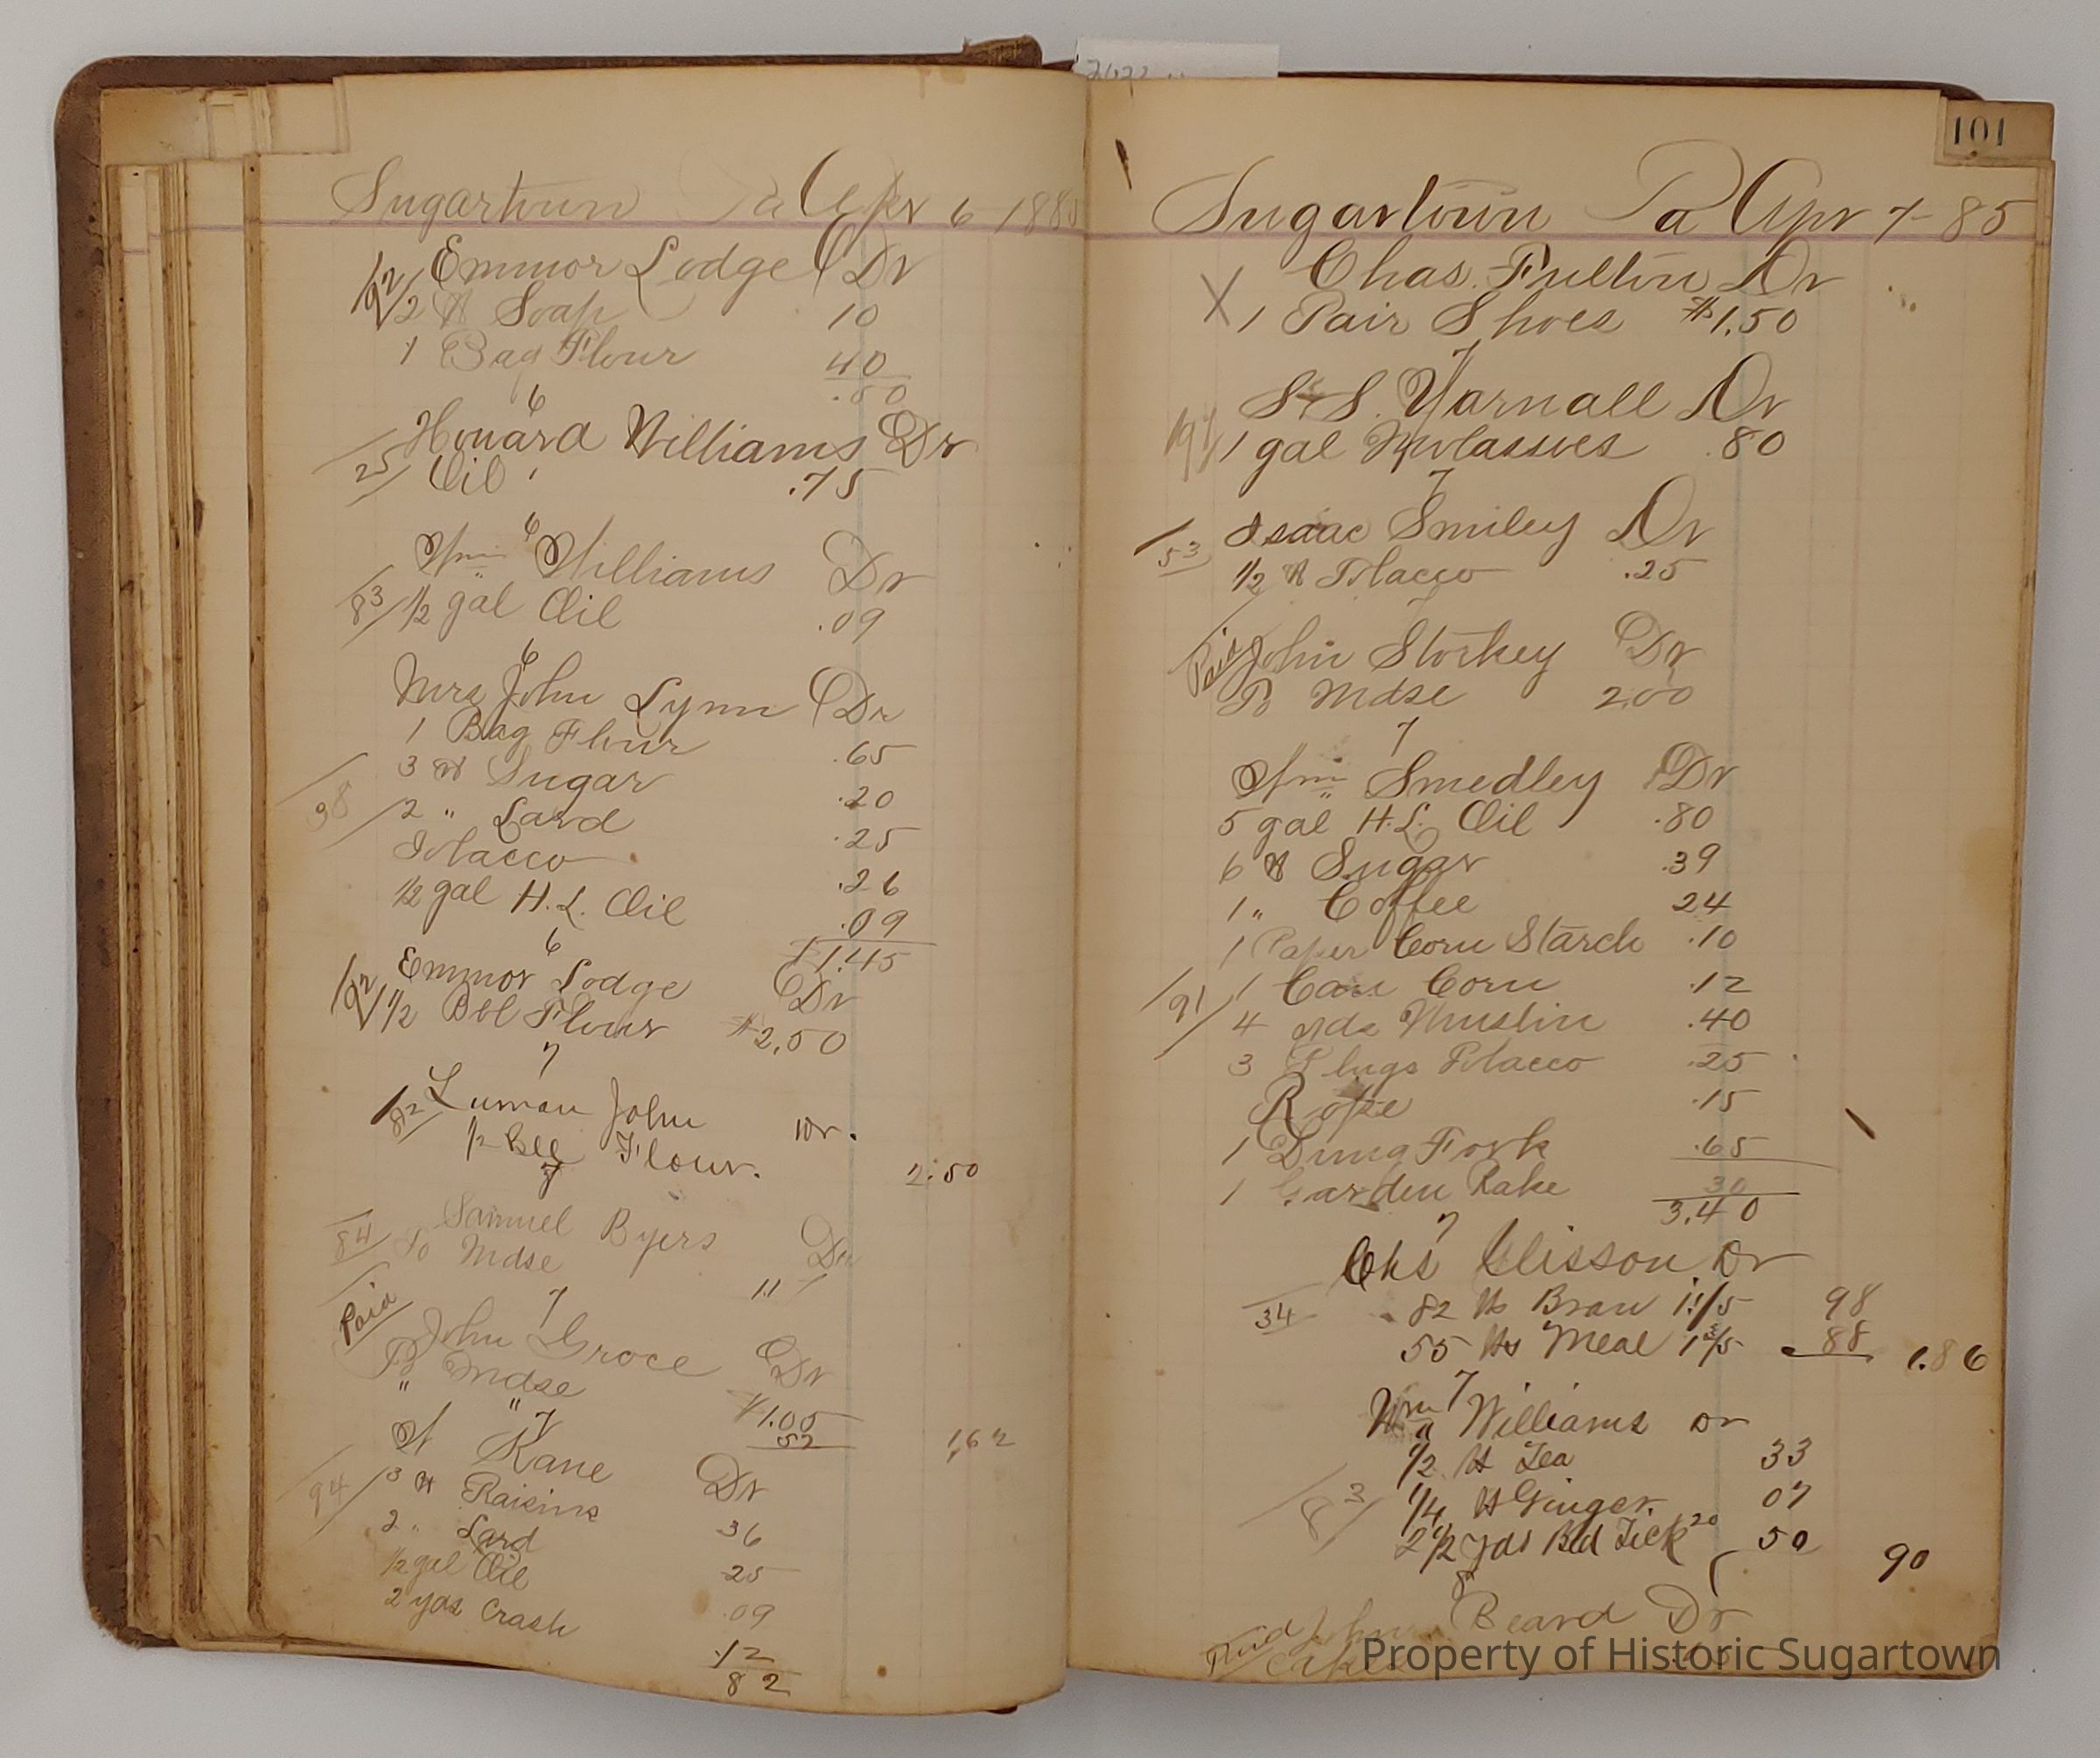 Sugartown Pa Apr 6 188
Emmor Lodge Dr
92
2 lb Soap 10
1 Bag Flour 40
.50
6
Howard Williams Dr
25 Oil .75
6
Wm Williams Dr
83 1/2 gal Oil .09
6
Mrs John Lynn Dr
1 Bag Flour .65
3 lb Sugar .20
98 2 " Lard .25
Tobacco .26
1/2 gal H.L. Oil .09
$1.45
6
Emmor Lodge Dr
92 1/2 Bbl Flour $2.50
7
82 Luman John Dr.
1/2 Bbl Flour. 2.50
7
Samuel Byers Dr
84 To Mdse 11
7
Paid John Groce Dr
To Mdse $1.05
" " 57 1,62
7
W Kane Dr
94 3 lb Raisins 36
2 " Lard 25
1/2 gal Oil .09
2 yds Crash .12
82
101
Sugartown Pa Apr 7-85
Chas. Fulton Dr
X 1 Pair Shoes $1.50
7
S. S. Yarnall Dr
1 gal Molasses .80
7
53 Isaac Smiley Dr
1/2 lb Tobacco .25
7
Paid John Storkey Dr
To Mdse 2.00
7
Wm Smedley Dr
5 gal H.L. Oil .80
6 lb Sugar .39
1 " Coffee 24
1 Paper Corn Starch .10
91 1 Can Corn .12
4 yds Muslin .40
3 Plugs Tobacco .25
Rope .15
1 Dung Fork .65
1 Garden Rake 30
3.40
7
Chs Clisson Dr
34 82 lbs Bran 98
55 lbs Meal 88 1.86
7
Wm Williams Dr
1/2 lb Tea 33
83 1/4 lb Ginger. 07
2 1/2 yds Bed Tick 20 50 90
8
Paid John Beard Dr
Cakes
Property of Historic Sugartown